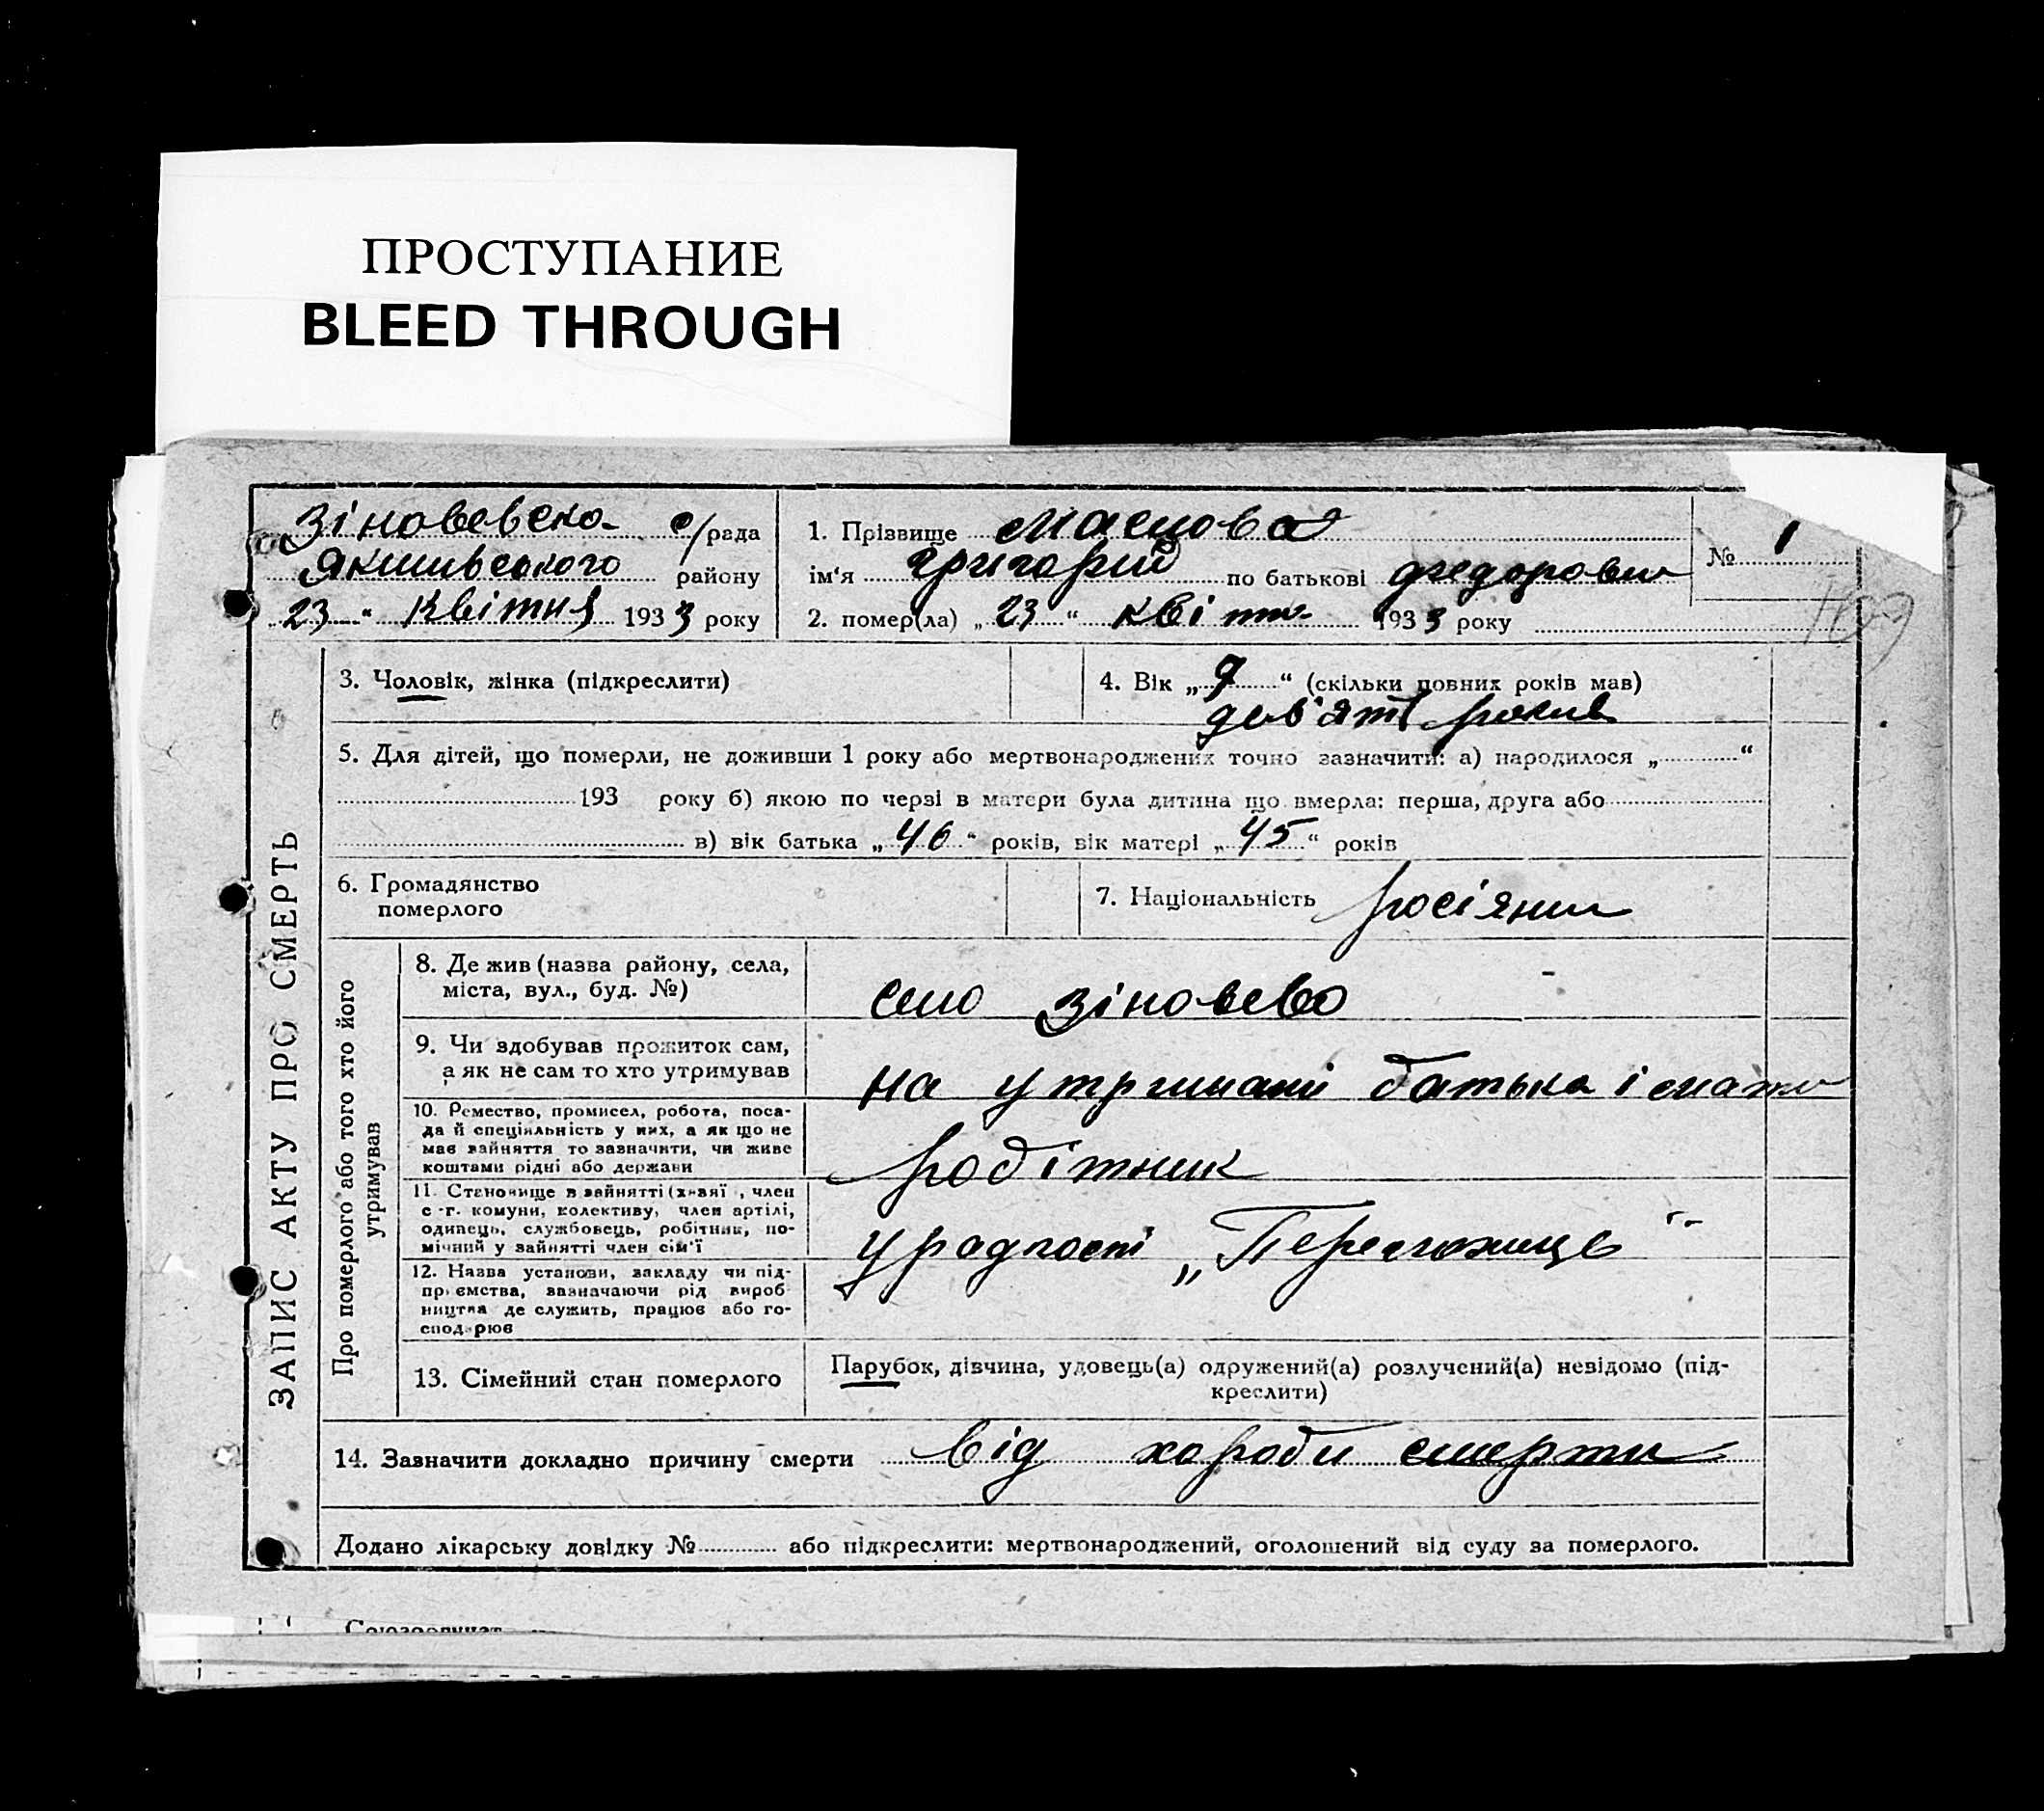 ПРОСТУПАНИЕ
BLEED THROUGH
Зіновевско- с/рада
району
23 " Квітня 1933 року
1. Прізвище
ім'я Григорий по батькові Федорови
№ 1
2. помер(ла) „ 23 " квітн- 1933 року
ЗАПИС АКТУ ПРО СМЕРТЬ
3. Чоловік, жінка (підкреслити)
4. Вік „ 9 " (скільки повних років мав)
дев'ять
5. Для дітей, що померли, не доживши 1 року або мертвонароджених точно зазначити: а) народилося „ "
193 року б) якою по черзі в матери була дитина що вмерла: перша, друга або
в) вік батька „ 46 " років, вік матері „ 45 " років
6. Громадянство
померлого
7. Національність росіянин
Про померлого або того хто його
утримував
8. Де жив (назва району, села,
міста, вул., буд. №)
село Зіновево
9. Чи здобував прожиток сам,
а як не сам то хто утримував
на утриманні батька і мати
10. Ремество, промисел, робота, поса-
да й спеціяльність у них, а як що не
має зайняття то зазначити, чи живе
коштами рідні або держави
робітник
11. Становище в зайнятті (хазяї , член
с-г. комуни, колективу, член артілі,
одинець, службовець, робітник, по-
мічний у зайнятті член сім'ї
у радгоспі
12. Назва установи, закладу чи під-
приємства, зазначаючи рід вироб
ництва де служить, працює або го-
сподарює
13. Сімейний стан померлого
Парубок, дівчина, удовець(а) одружений(а) розлучений(а) невідомо (під-
креслити)
14. Зазначити докладно причину смерти від хороби смерти
Додано лікарську довідку № або підкреслити: мертвонароджений, оголошений від суду за померлого.